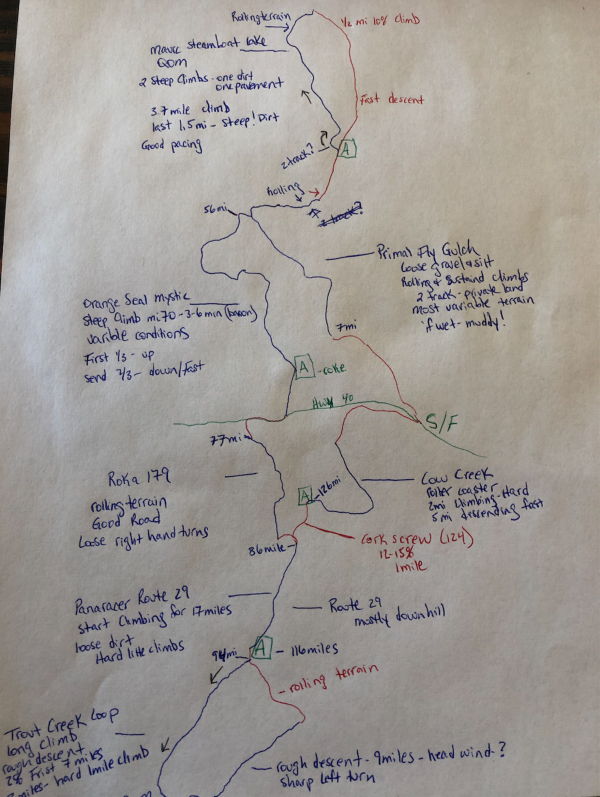 Rolling terrain
1/2 mi 10% climb
Mavic steamboat lake
QOM
2 Steep Climbs - one dirt
one pavement
3.7 mile climb
last 1.5 mi - Steep! Dirt
Good pacing
Fast descent
2 track?
A
Rolling
56 mi
Primal Fly Gulch
Loose gravel & silt
Rolling & Sustaind climbs
2 Track - private land
most variable terrain
if wet - muddy!
Orange Seal mystic
Steep Climb mi 70 - 3-6 min
varible conditions
First 1/3 - up
send 2/3 - down/fast
7mi
A - roke
Hwy 40
S/F
77mi
Roka 179
rolling terrain
Good Road
Loose right hand turns
A
126mi
Cow Creek
roller coaster
2mi Climbing - Hard
5 mi descending fast
Cork screw (124)
12-15%
1 mile
86 mile
Panaracer Route 29
start Climbing for 17 miles
loose dirt
Hard little climbs
Route 29
mostly downhill
94 mi
A - 116 miles
- rolling terrain
Trout Creek Loop
long climb
rough descent
2% Frist 7 miles
miles - hard 1 mile climb
rough descent - 9 miles - head wind - ?
sharp left turn